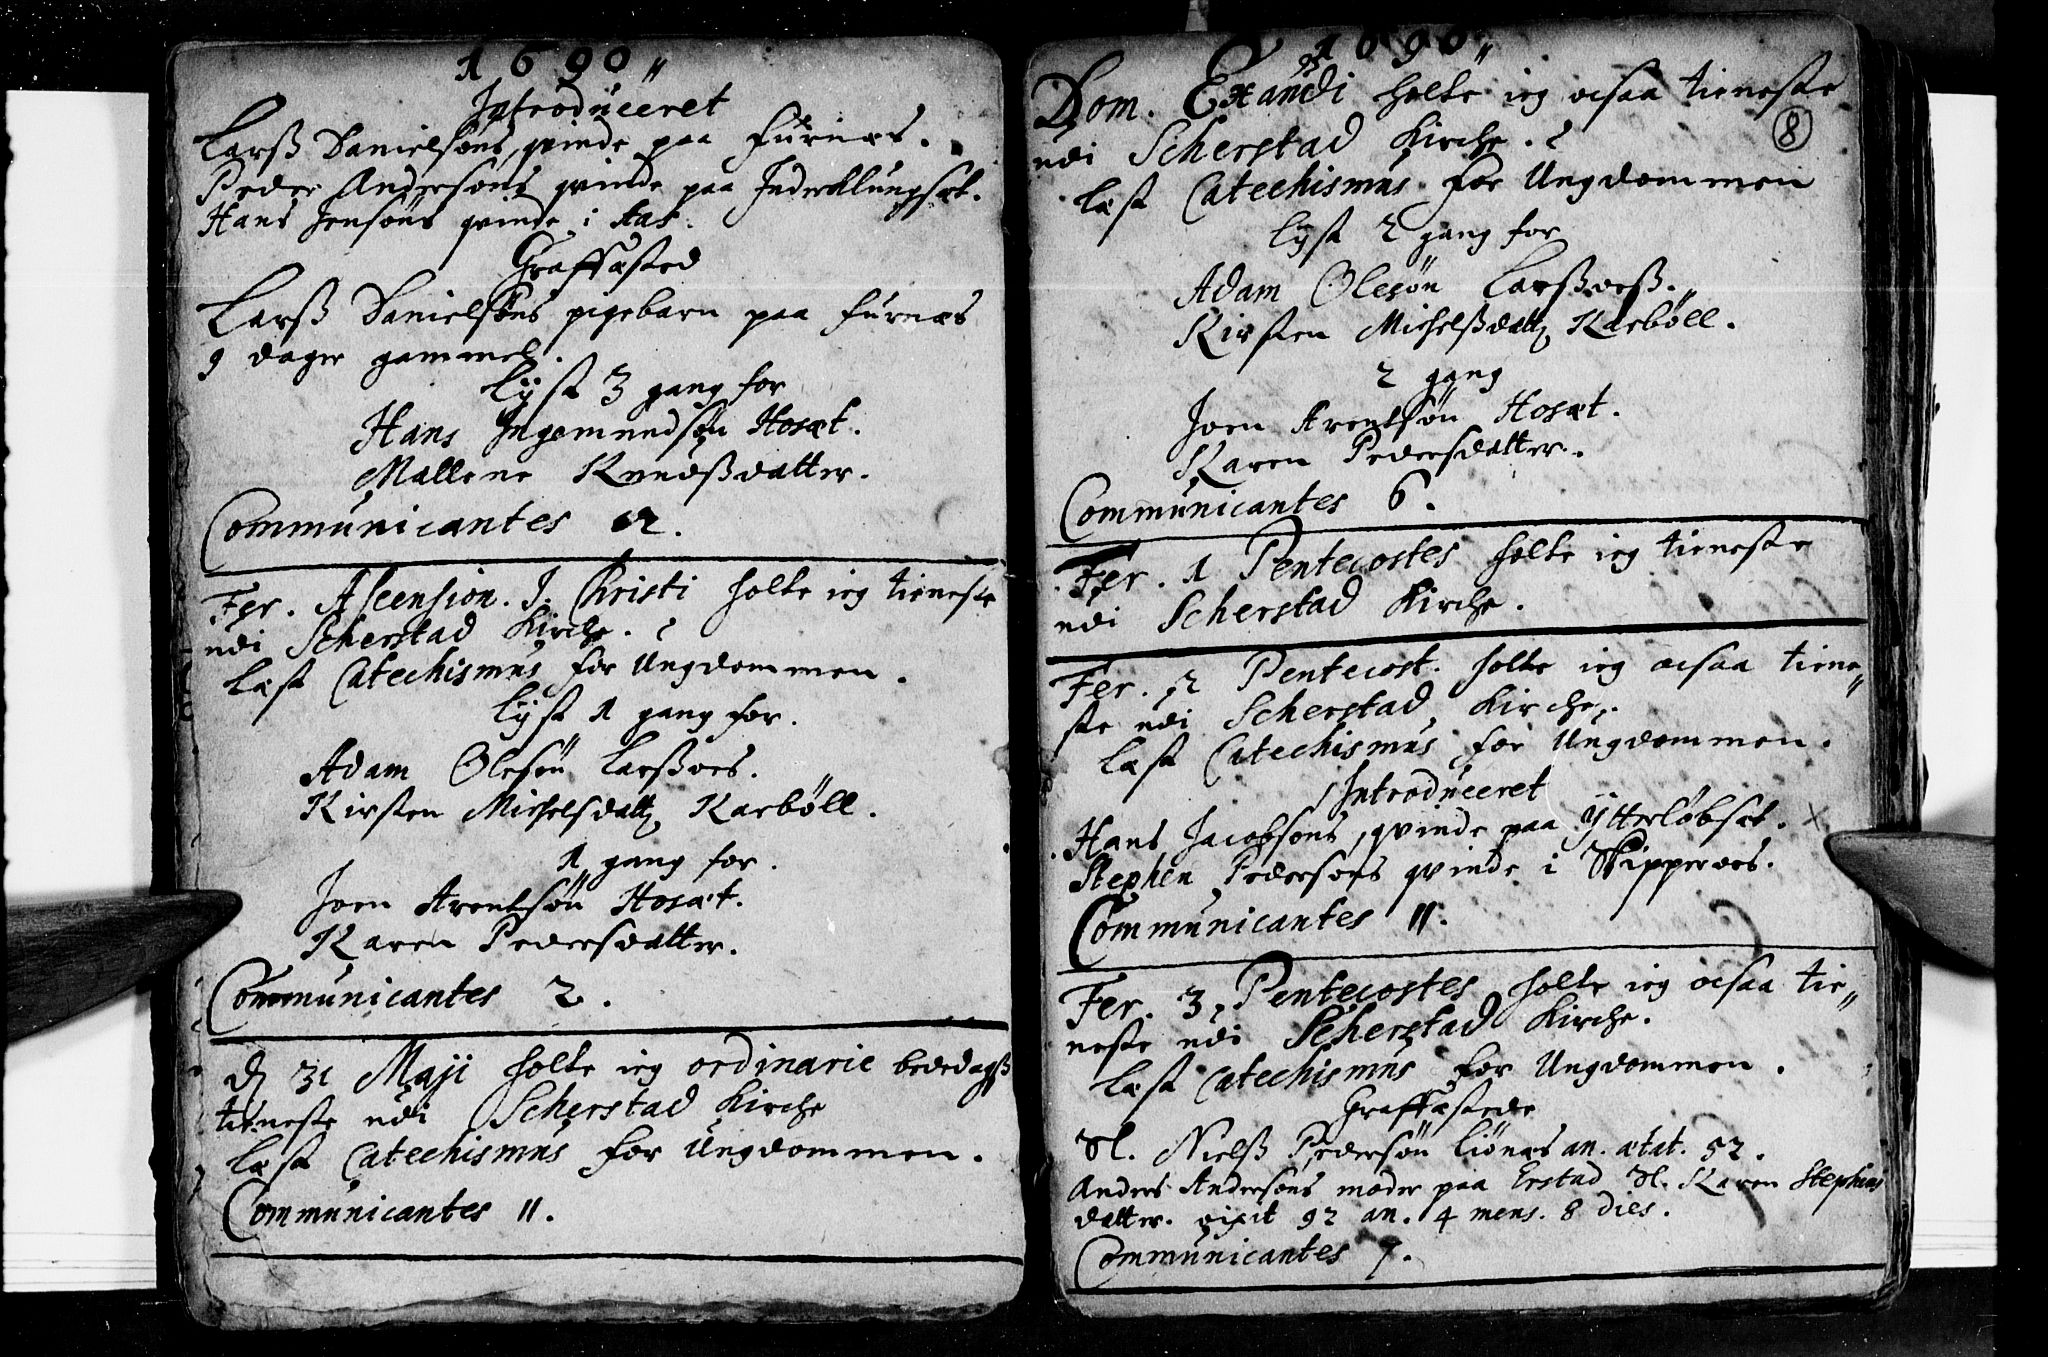 1690
Introduceret
Larß Danielsøns qvinde paa Furnæs.
Peder Andersøns qvinde paa Inder Klungset.
Hans Jensøns qvinde i Aas.
Graffæsted
Larß Danielsøns pigebarn paa Furnæs
9 dager gammel.
Lyst 3 gang for
Hans Ingemundsøn Hosæt.
Mallene Knudßdatter.
Communicantes 12.
Fer. Ascension. J. Christi holte ieg tieneste
udi Scherstad Kirche. &
læst Catechismus for Ungdommen.
lyst 1 gang for.
Adam Olesøn Larßvos.
Kirsten Michelsdatt. Karbøll.
1 gang for.
Joen Arentsøn Hosæt.
Karen Pedersdatter.
Communicantes 2.
D. 31 Maji holte ieg ordinarie bededagß
tieneste udi Scherstad Kirche
læst Catechismus for Ungdommen.
Communicantes 11.
1690
8
Dom. Exaudi holte ieg ocsaa tieneste
udi Scherstad Kirche. &
læst Catechismus for Ungdommen
lyst 2 gang for
Adam Olesøn Larßvoß.
Kirsten Michelßdatt. Karbøll.
2 gang
Joen Arentsøn Hosæt.
Karen Pedersdatter.
Communicantes 6.
Fer. 1 Pentecostes holte ieg tieneste
udi Scherstad Kirche.
Fer. 2 Pentecost. holte ieg ocsaa tiene-
ste udi Scherstad Kirche.
læst Catechismus for Ungdommen.
Introduceret
Hans Jacobsøns qvinde paa Ytterløbset.
Stephen Pedersøns qvinde i Skippervos.
Communicantes 11.
Fer. 3. Pentecostes holte ieg ocsaa tie-
neste udi Scherstad Kirche.
læst Catechismus for Ungdommen.
Graffæstede
Sl. Nielß Pedersøn Liønæs an. ætat. 52.
Anders Andersøns moder paa Erstad Sl. Karen Stephens
datter. vixit 92 an. 4 mens. 8 dies.
Communicantes 7.